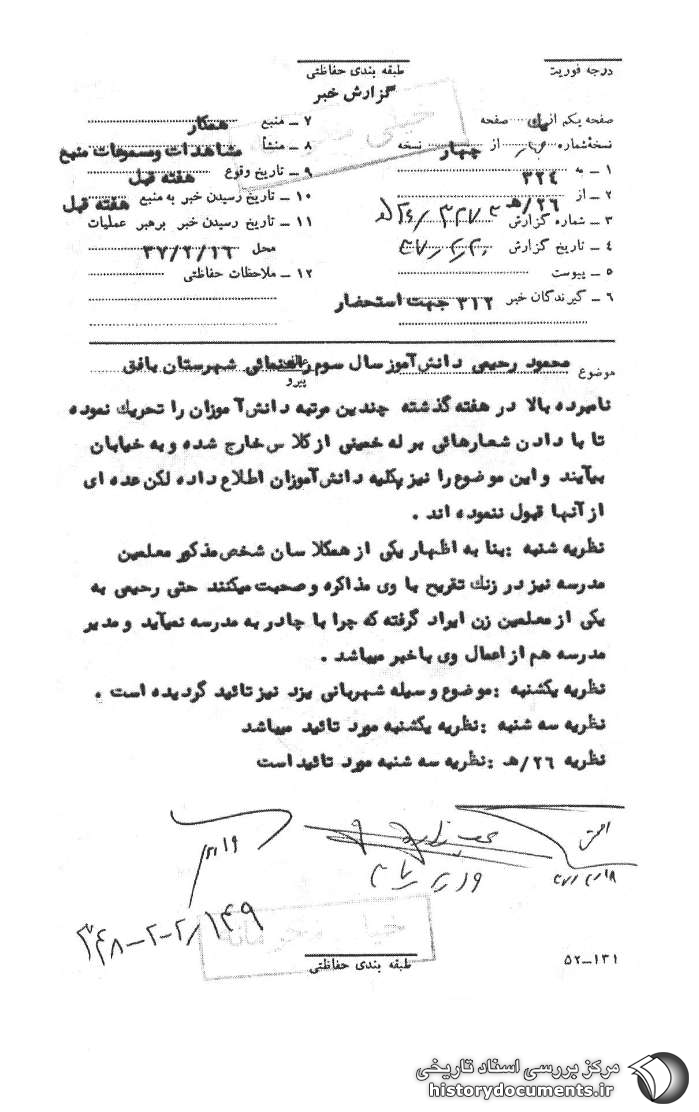 طبقه بندی حفاظتی
درجه فوریت
گزارش خبر
خیلی محرمانه
صفحه یکم از یک صفحه
نسخهٔ شماره چهار از چهار نسخه
۱ ـ به ۳۲۴
۲ ـ از ۲۶/هـ
۳ ـ شماره گزارش
۴ ـ تاریخ گزارش
۵ ـ پیوست
۶ ـ گیرندگان خبر ۳۱۲ جهت استحضار
۷ ـ منبع همکار
۸ ـ منشأ مشاهدات ومسموعات منبع
۹ ـ تاریخ وقوع هفته قبل
۱۰ ـ تاریخ رسیدن خبر به منبع هفته قبل
۱۱ ـ تاریخ رسیدن خبر برهبر عملیات
محل ۳۷/۲/۱۶
۱۲ ـ ملاحظات حفاظتی
موضوع محمود رحیمی دانش‌آموز سال سوم راهنمائی شهرستان بافق
پیرو
نامبرده بالا در هفته گذشته چندین مرتبه دانش‌آموزان را تحریك نموده
تا با دادن شعارهائی بر له خمینی از کلاس خارج شده و به خیابان
بیآیند و این موضوع را نیز بکلیه دانش‌آموزان اطلاع داده لکن عده ای
از آنها قبول ننموده اند .
نظریه شنبه : بنا به اظهار یکی از همکلاسان شخص مذکور معلمین
مدرسه نیز در زنك تفریح با وی مذاکره و صحبت میکنند حتی رحیمی به
یکی از معلمین زن ایراد گرفته که چرا با چادر به مدرسه نمیآید و مدیر
مدرسه هم از اعمال وی باخبر میباشد .
نظریه یکشنبه : موضوع وسیله شهربانی یزد نیز تائید گردیده است .
نظریه سه شنبه : نظریه یکشنبه مورد تائید میباشد
نظریه ۲۶/هـ : نظریه سه شنبه مورد تائید است
خیلی محرمانه
طبقه بندی حفاظتی
۵۲ـ۱۳۱
مرکز بررسی اسناد تاریخی
historydocuments.ir